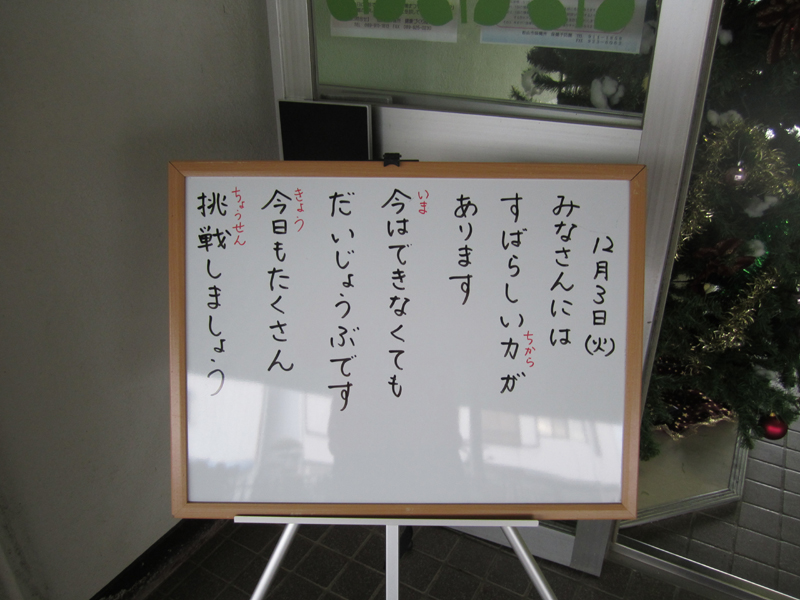 12月3日(火)
みなさんには
すばらしい力が
ちから
あります
今はできなくても
いま
だいじょうぶです
今日もたくさん
きょう
挑戦しましょう
ちょうせん